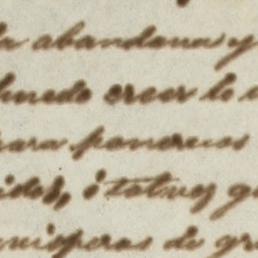 la abandona y
puedo creer lo
para ponernos
ó talvez
vísperas de